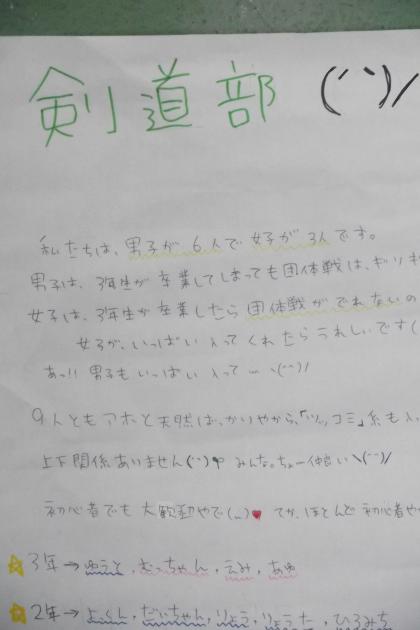 剣道部 (´`)/
私たちは、男子が6人で女子が3人です。
男子は、3年生が卒業してしまっても団体戦は、ギリギ
女子は、3年生が卒業したら団体戦がでれないの
女子が、いっぱい入ってくれたらうれしいです(
あっ!! 男子もいっぱい入って
9人ともアホと天然ばっかりやから、「ツッコミ」系も入
上下関係ありません みんなちょー仲良い
初心者でも大歓迎やで ♥ てか、ほとんど初心者や
☆3年→ゆうと、むっちゃん、えみ、あゆ
☆2年→よくん、だいちゃん、りょう、りょうた、ひろみち